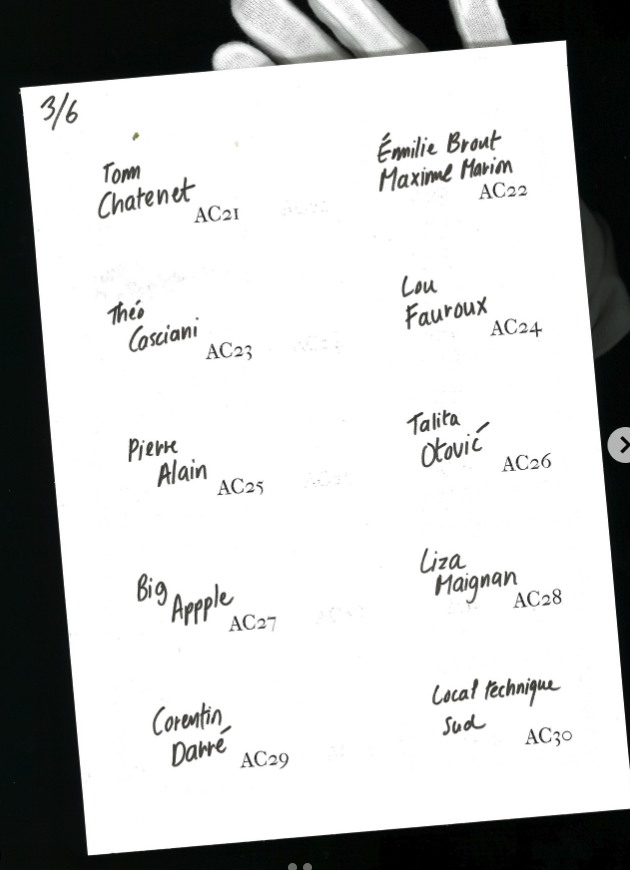 3/6
Tom
Chatenet
AC21
Émilie Brout
Maxime Marion
AC22
Théo
Casciani
AC23
Lou
Fauroux
AC24
Pierre
Alain
AC25
Talita
Otović
AC26
Big
Appple
AC27
Liza
Maignan
AC28
Corentin
Darré
AC29
Local technique
Sud
AC30